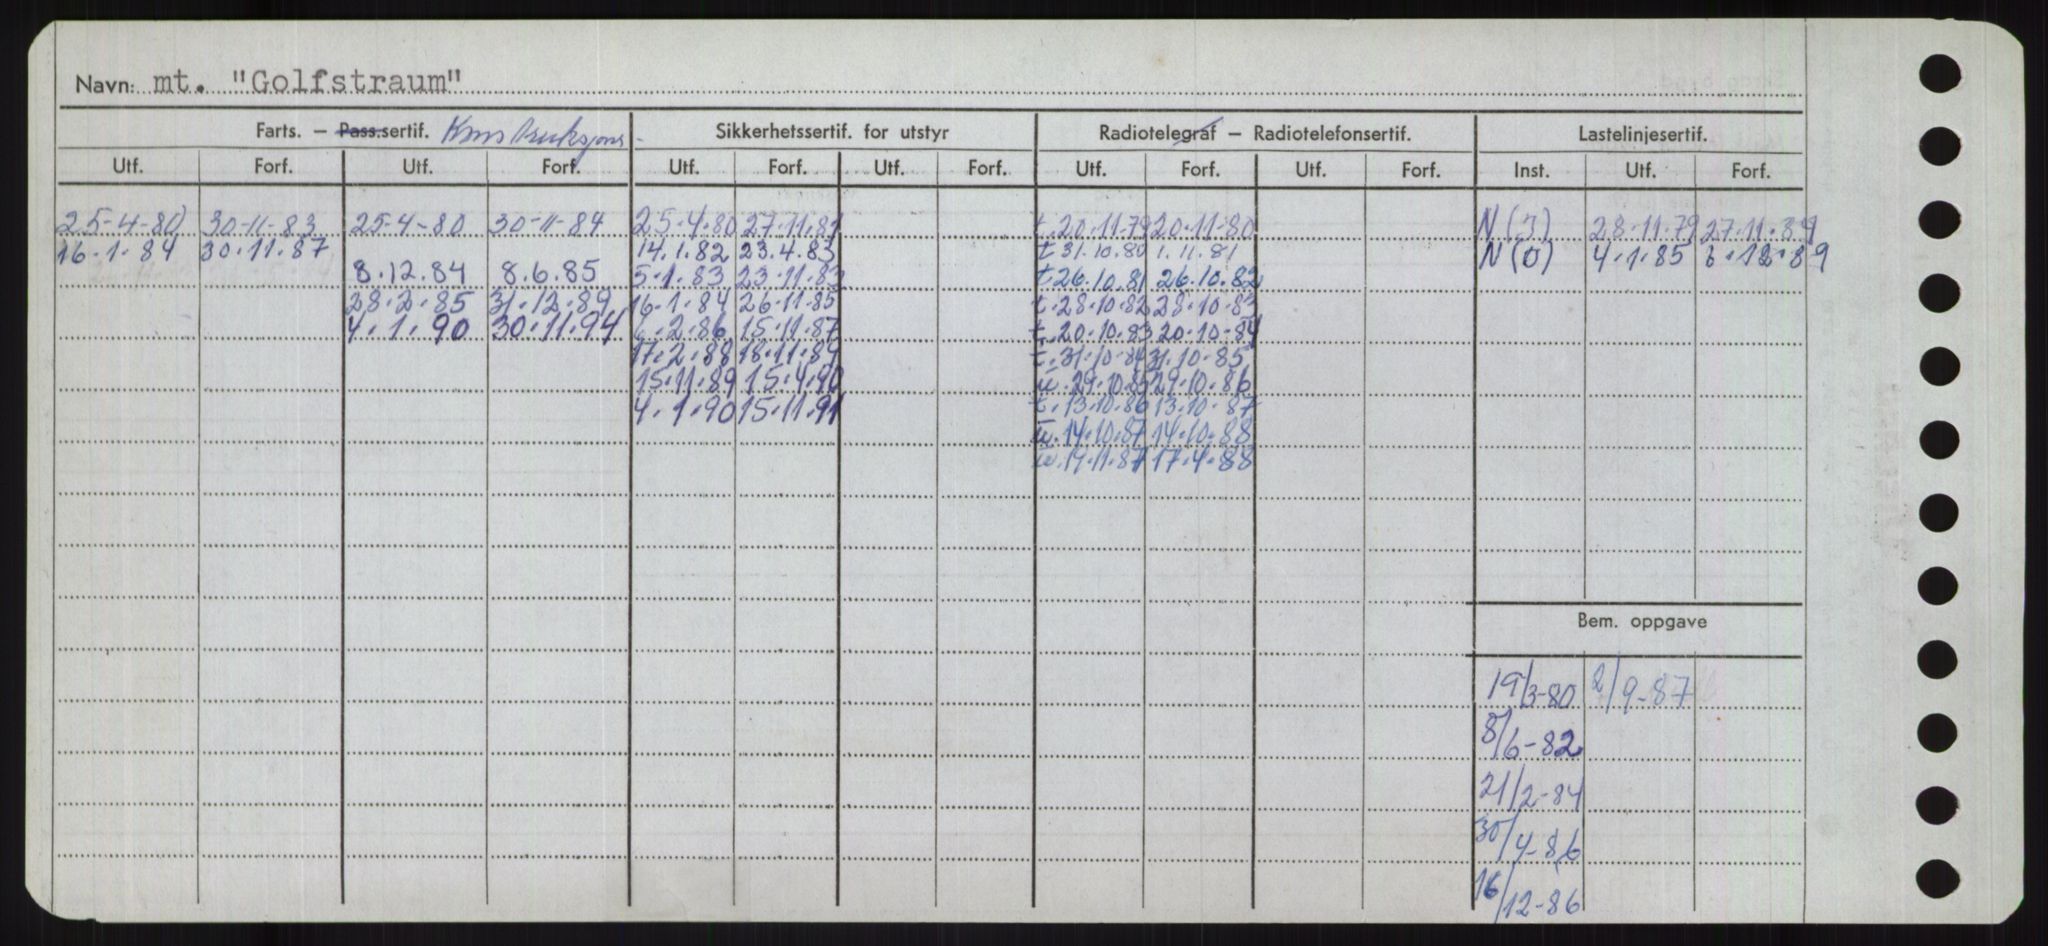 Navn: mt. "Golfstraum"
Farts. – Pass.sertif. Konstruksjons- Sikkerhetssertif. for utstyr Radiotelegraf – Radiotelefonsertif. Lastelinjesertif.
Utf. Forf. Utf. Forf. Utf. Forf. Utf. Forf. Utf. Forf. Utf. Forf. Inst. Utf. Forf.
25-4-80 30-11-83 25-4-80 30-11-84 25.4.80 27.11.81 t. 20.11.79 20.11.80 N (3) 28.11.79 27.11.84
16.1.84 30.11.87 14.1.82 23.4.83 t 31.10.80 1.11.81 N (0) 4.1.85 6.12.89
8.12.84 8.6.85 5.1.83 23.11.83 t. 26.10.81 26.10.82
28.2.85 31.12.89 16.1.84 26.11.85 t. 28.10.82 28.10.83
4.1.90 30.11.94 6.2.86 15.11.87 t. 20.10.83 20.10.84
17.2.88 18.11.89 t. 31.10.84 31.10.85
15.11.89 15.4.90 29.10.85 29.10.86
4.1.90 15.11.91 t. 13.10.86 13.10.87
14.10.87 14.10.88
17.11.87 17.4.88
Bem. oppgave
19/3-80 2/9-87
8/6-82
21/2-84
30/4-86
16/12-86